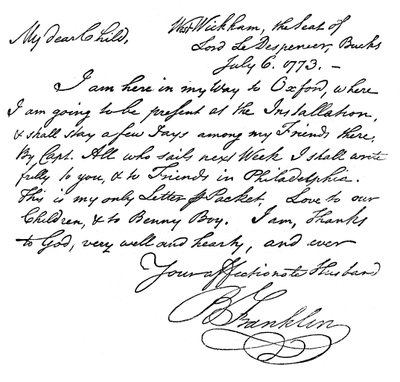 My dear Child,
West Wickham, the Seat of
Lord Le Despencer, Bucks
July 6. 1773. –
I am here in my Way to Oxford, where
I am going to be present at the Installation,
& shall stay a few Days among my Friends there.
By Capt. All who sails next Week I shall write
fully to you, & to Friends in Philadelphia.
This is my only Letter ⅌ Packet. Love to our
Children, & to Benny Boy. I am, Thanks
to God, very well and hearty, and ever
Your affectionate Husband
B Franklin